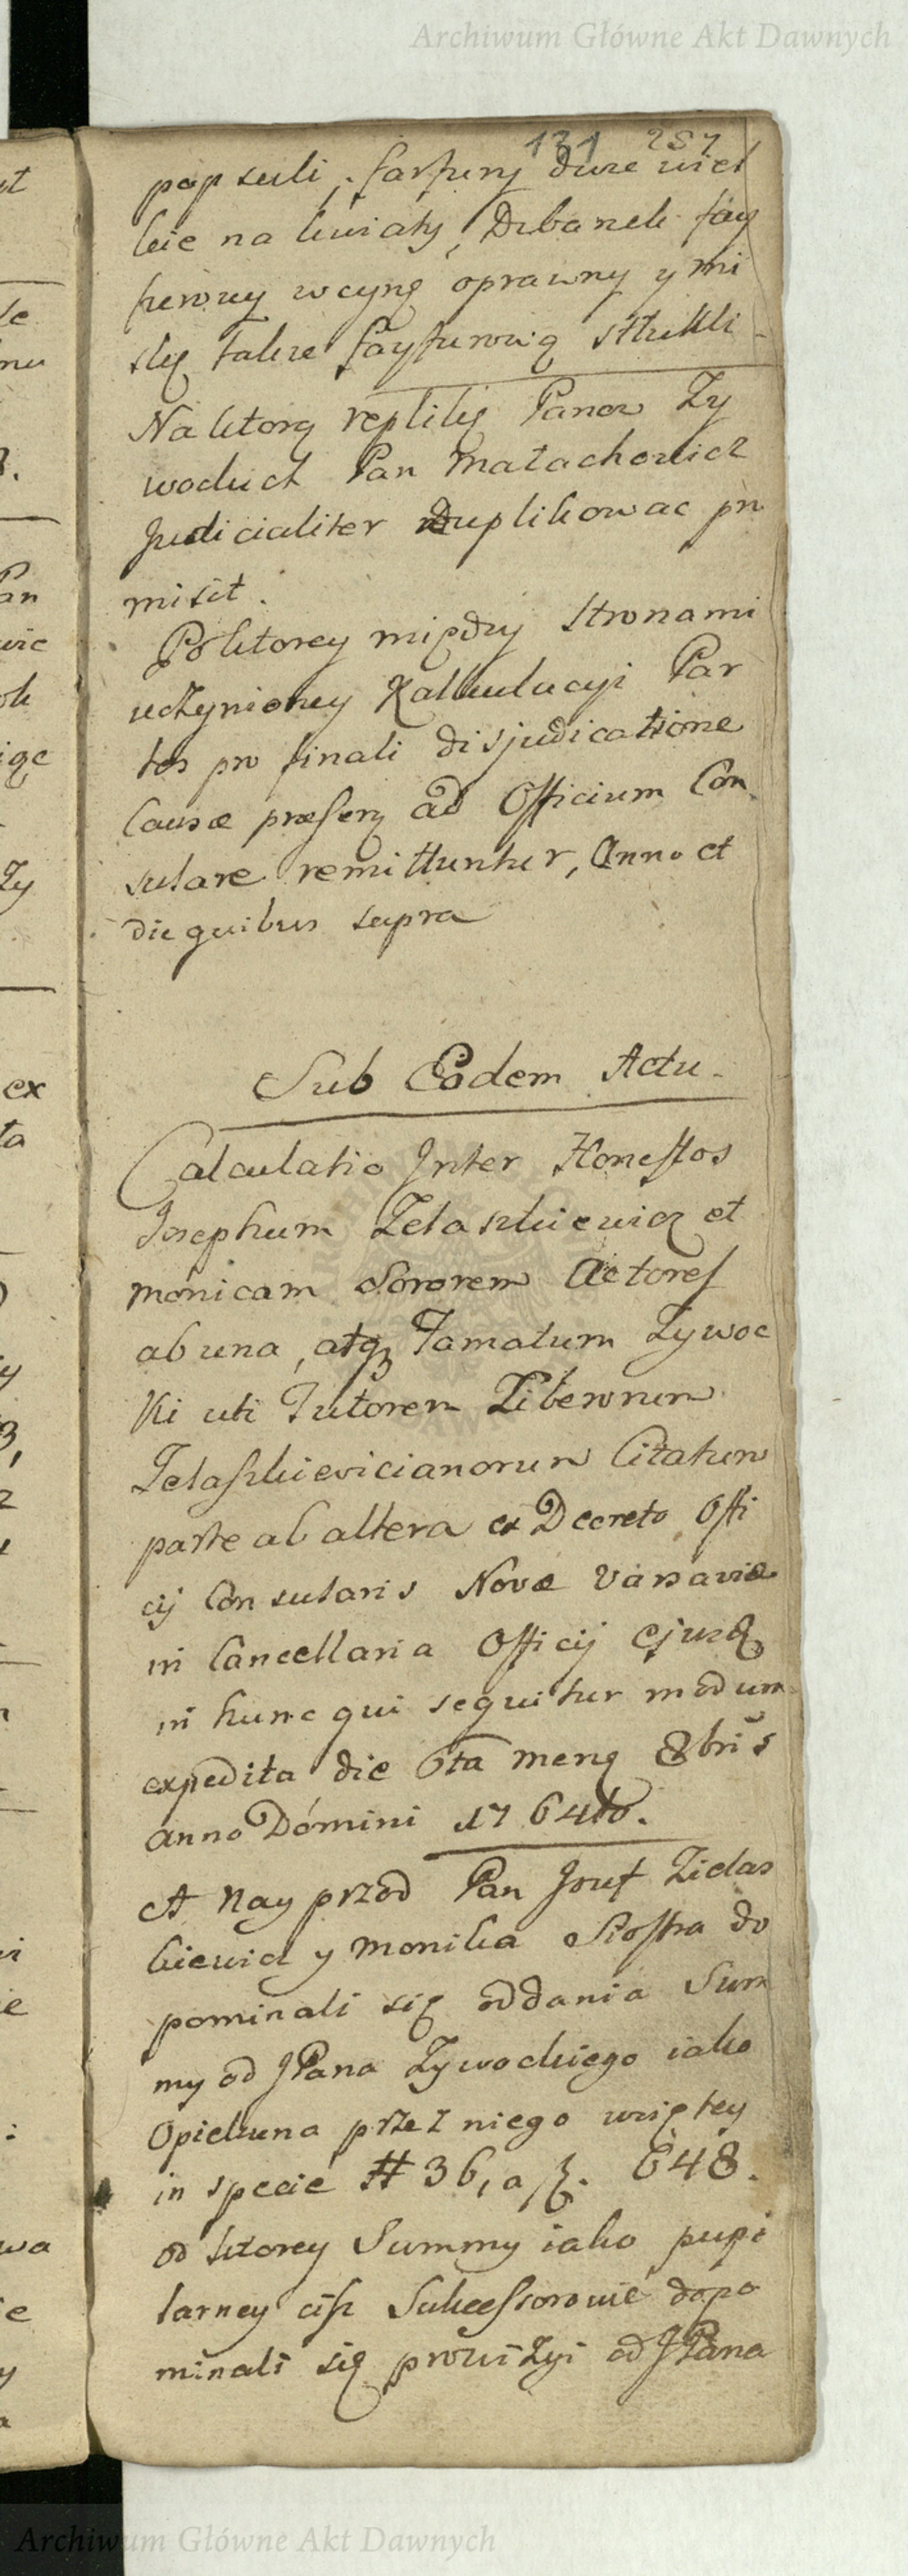 Archiwum Główne Akt Dawnych
131 257
popsuli, farfury dwie wiel
kie na kwiaty, Dzbanek fay
furowy wcynę oprawny y mi
skę także fayfurową stłukli
Na ktorą replikę Panow Zy
wockich Pan Małachowicz
Judicialiter Duplikowac pro
misit.
Po ktorey między Stronami
uczynioney Kalkulacyi Par
tes pro finali disjudicatione
Causæ præsenz ad Officium Con
sulare remittuntur, Anno et
die quibus supra
Sub Eodem Actu
Calculatio Inter Honestos
Josephum Zelaszkiewicz et
Monicam Sororem Actores
ab una, atqz Famatum Zywoc
ki uti Tutorem Liberorum
Zelaszkievicianorum Citatum
parte ab altera ex Decreto Offi
cij Consularis Novæ Varsaviæ
in Cancellaria Officij Ejusdz
in hunc qui sequitur modum
expedita die 6ta mens 8bris
Anno Domini 1764to.
A Nayprzod Pan Jozef Zielas
kiewicz y Monika Siostra do
pominali się oddania Sum
my od JPana Zywockiego iako
Opiekuna przez niego wziętey
in specie # 36, a fz. 648.
od ktorey Summy iako pupi
larney ciż Sukcessorowie dopo
minali się prowizyi od JPana
Archiwum Główne Akt Dawnych